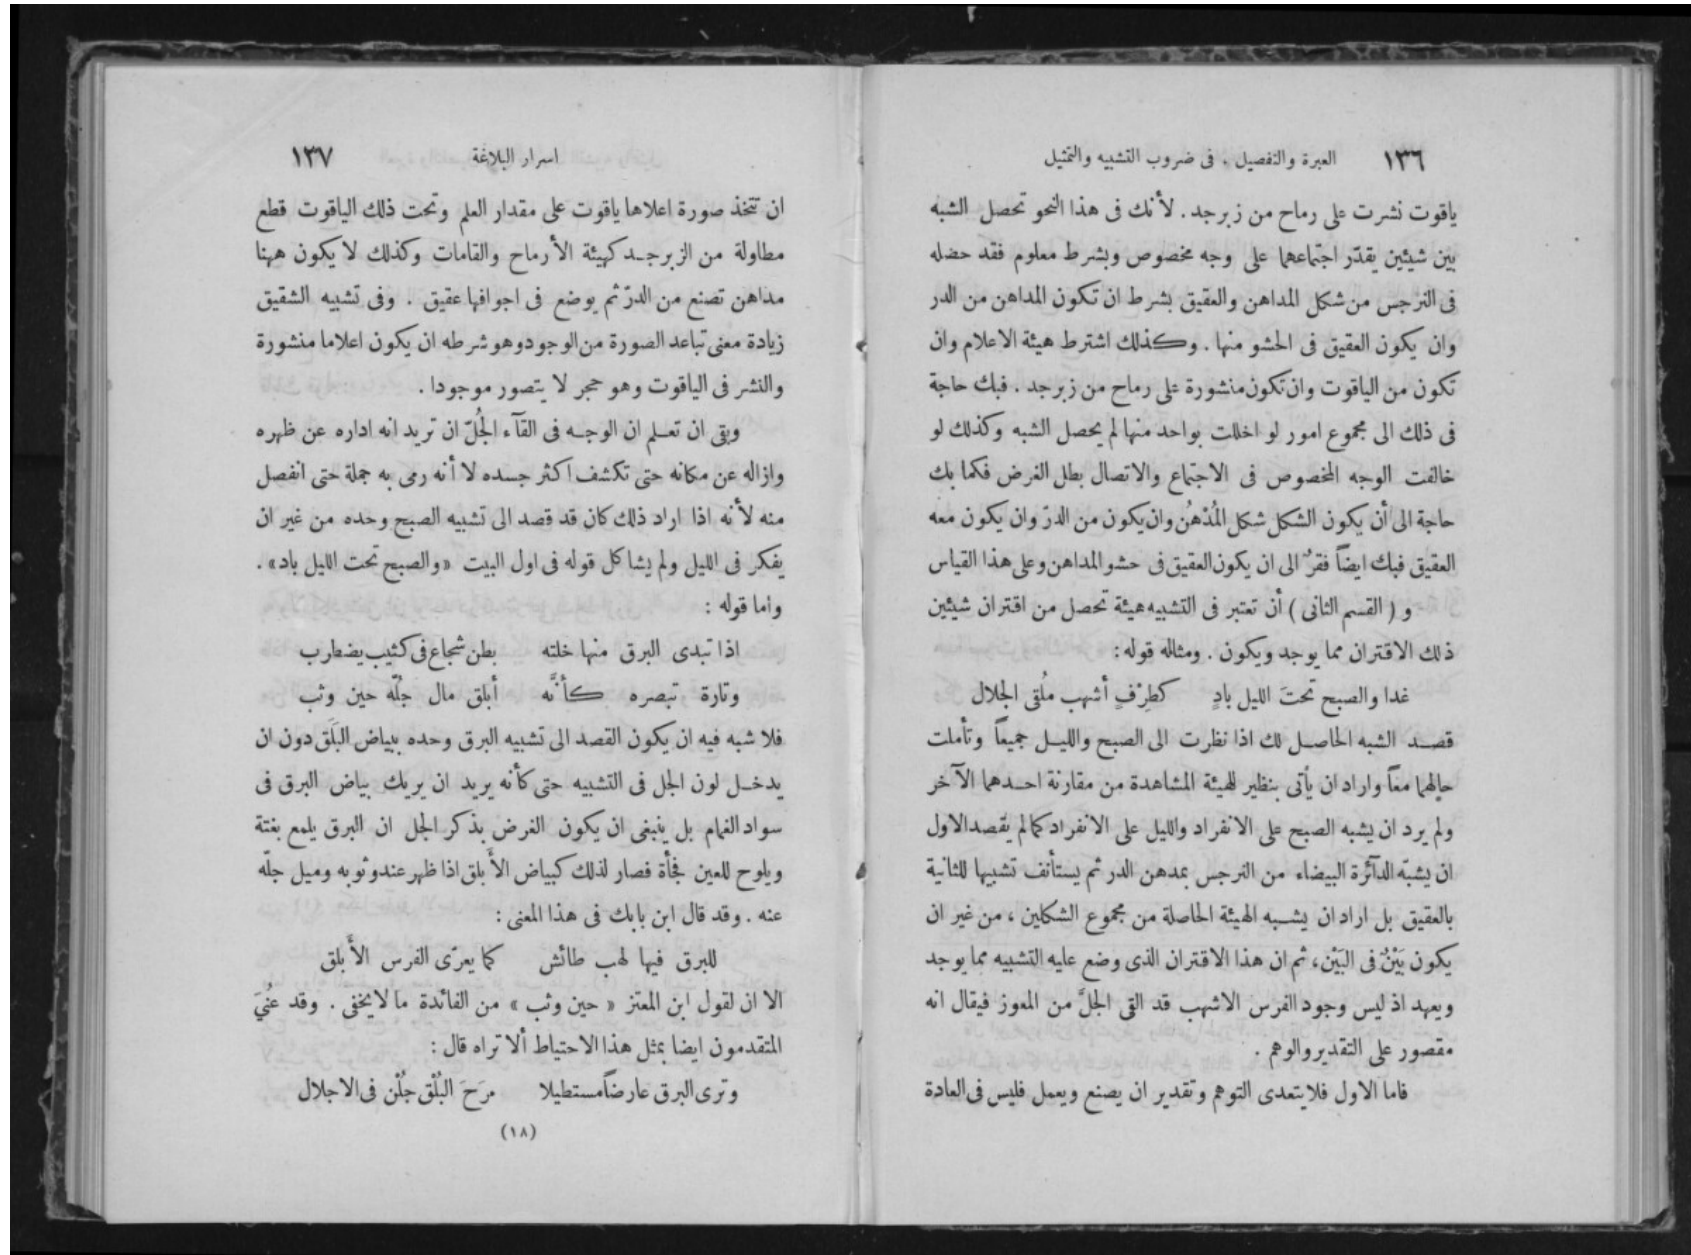 ١٣٦ العبرة والتفصيل . فى ضروب التشبيه والتمثيل
ياقوت نشرت على رماح من زبرجد . لأنك فى هذا النحو تحصل الشبه
بين شيئين يقدّر اجتماعهما على وجه مخصوص وبشرط معلوم فقد حضله
فى النرجس من شكل المداهن والعقيق بشرط ان تكون المداهن من الدر
وان يكون العقيق فى الحشو منها . وكذلك اشترط هيئة الاعلام وان
تكون من الياقوت وان تكون منشورة على رماح من زبرجد . فبك حاجة
فى ذلك الى مجموع امور لو اخللت بواحد منها لم يحصل الشبه وكذلك لو
خالفت الوجه المخصوص فى الاجتماع والاتصال بطل الغرض فكما بك
حاجة الى أن يكون الشكل شكل المُدْهُن وان يكون من الدرّ وان يكون معه
العقيق فبك ايضاً فقرٌ الى ان يكون العقيق فى حشو المداهن وعلى هذا القياس
و ( القسم الثانى ) أن تعتبر فى التشبيه هيئة تحصل من اقتران شيئين
ذلك الاقتران مما يوجد ويكون . ومثاله قوله :
غدا والصبح تحتَ الليل بادٍ كطِرْفٍ أشهب مُلقى الجلال
قصد الشبه الحاصل لك اذا نظرت الى الصبح والليل جميعاً وتأملت
حالهما معاً واراد ان يأتى بنظير للهيئة المشاهدة من مقارنة احدهما الآخر
ولم يرد ان يشبه الصبح على الانفراد والليل على الانفراد كما لم يقصد الاول
ان يشبّه الدآئرة البيضاء من النرجس بمدهن الدر ثم يستأنف تشبيها للثانية
بالعقيق بل اراد ان يشبه الهيئة الحاصلة من مجموع الشكلين ، من غير ان
يكون بَيْنٌ فى البَيْن ، ثم ان هذا الاقتران الذى وضع عليه التشبيه مما يوجد
ويعهد اذ ليس وجود الفرس الاشهب قد القى الجلَّ من المعوز فيقال انه
مقصور على التقدير والوهم .
فاما الاول فلا يتعدى التوهم وتقدير ان يصنع ويعمل فليس فى العادة
اسرار البلاغة ١٣٧
ان تتخذ صورة اعلاها ياقوت على مقدار العلم وتحت ذلك الياقوت قطع
مطاولة من الزبرجد كهيئة الأرماح والقامات وكذلك لا يكون ههنا
مداهن تصنع من الدرّ ثم يوضع فى اجوافها عقيق . وفى تشبيه الشقيق
زيادة معنى تباعد الصورة من الوجود وهو شرطه ان يكون اعلاما منشورة
والنشر فى الياقوت وهو حجر لا يتصور موجودا .
وبقى ان تعلم ان الوجه فى القآء الجُلّ ان تريد انه اداره عن ظهره
وازاله عن مكانه حتى تكشف اكثر جسده لا أنه رمى به جملة حتى انفصل
منه لأنه اذا اراد ذلك كان قد قصد الى تشبيه الصبح وحده من غير ان
يفكر فى الليل ولم يشاكل قوله فى اول البيت «والصبح تحت الليل باد» .
واما قوله :
اذا تبدى البرق منها خلته بطن شجاع فى كثيب يضطرب
وتارة تبصره كأنَّه أبلق مال جُلّه حين وثب
فلا شبه فيه ان يكون القصد الى تشبيه البرق وحده ببياض البَلَق دون ان
يدخل لون الجل فى التشبيه حتى كأنه يريد ان يريك بياض البرق فى
سواد الغمام بل ينبغى ان يكون الغرض بذكر الجل ان البرق يلمع بغتة
ويلوح للعين فجأة فصار لذلك كبياض الأَبلق اذا ظهر عند وثوبه وميل جلّه
عنه . وقد قال ابن بابك فى هذا المعنى :
للبرق فيها لهب طائش كما يعرّى الفرس الأَبلق
الا ان لقول ابن المعتز « حين وثب » من الفائدة ما لا يخفى . وقد عُنِيَ
المتقدمون ايضا بمثل هذا الاحتياط ألا تراه قال :
وترى البرق عارضاً مستطيلا مرَحَ البُلْق جُلْن فى الاجلال
(١٨)